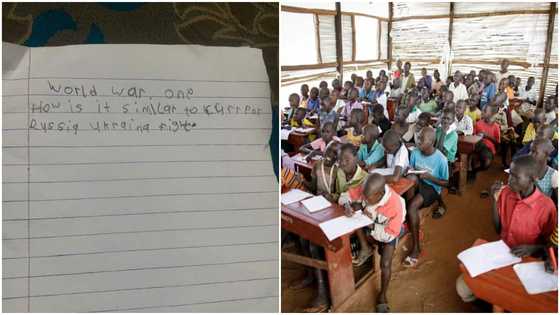 World war one
How is it similar to
Russia Ukraina fight